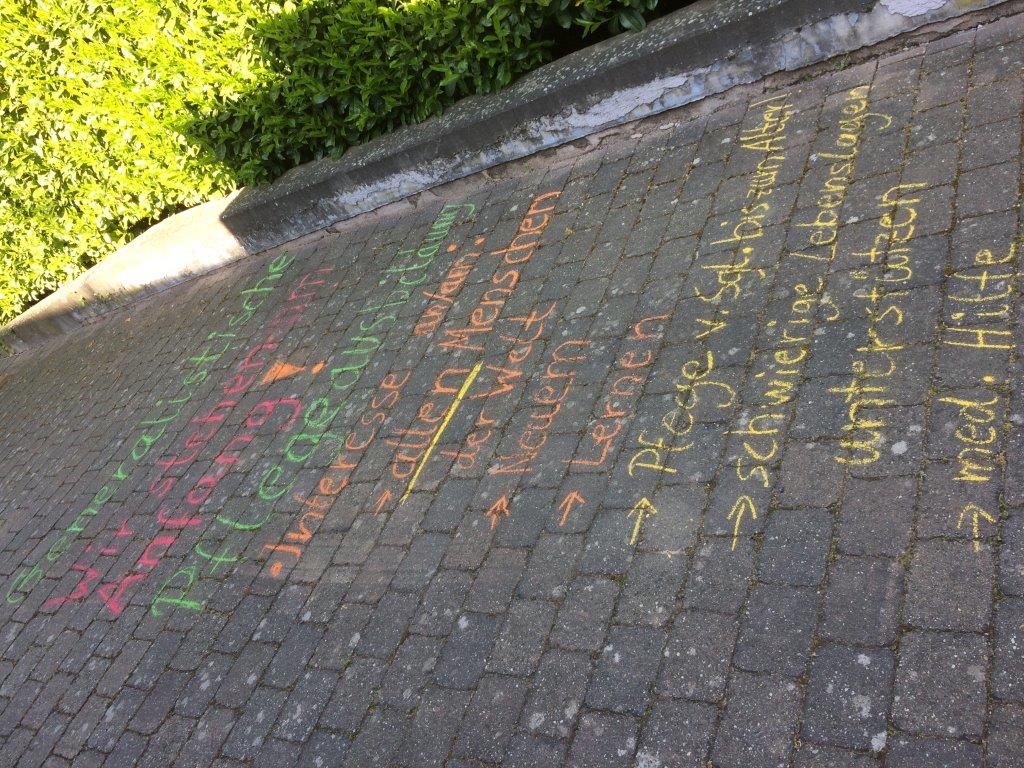 Generalistische
Wir stehen am
Anfang!
Pflegeausbildung
• Interesse an/am:
→ allen Menschen
der Welt
→ Neuem
→ Lernen
→ Pflege v. Sgl. bis zum Alter!
→ schwierige Lebenslagen
unterstützen
→ med. Hilfe